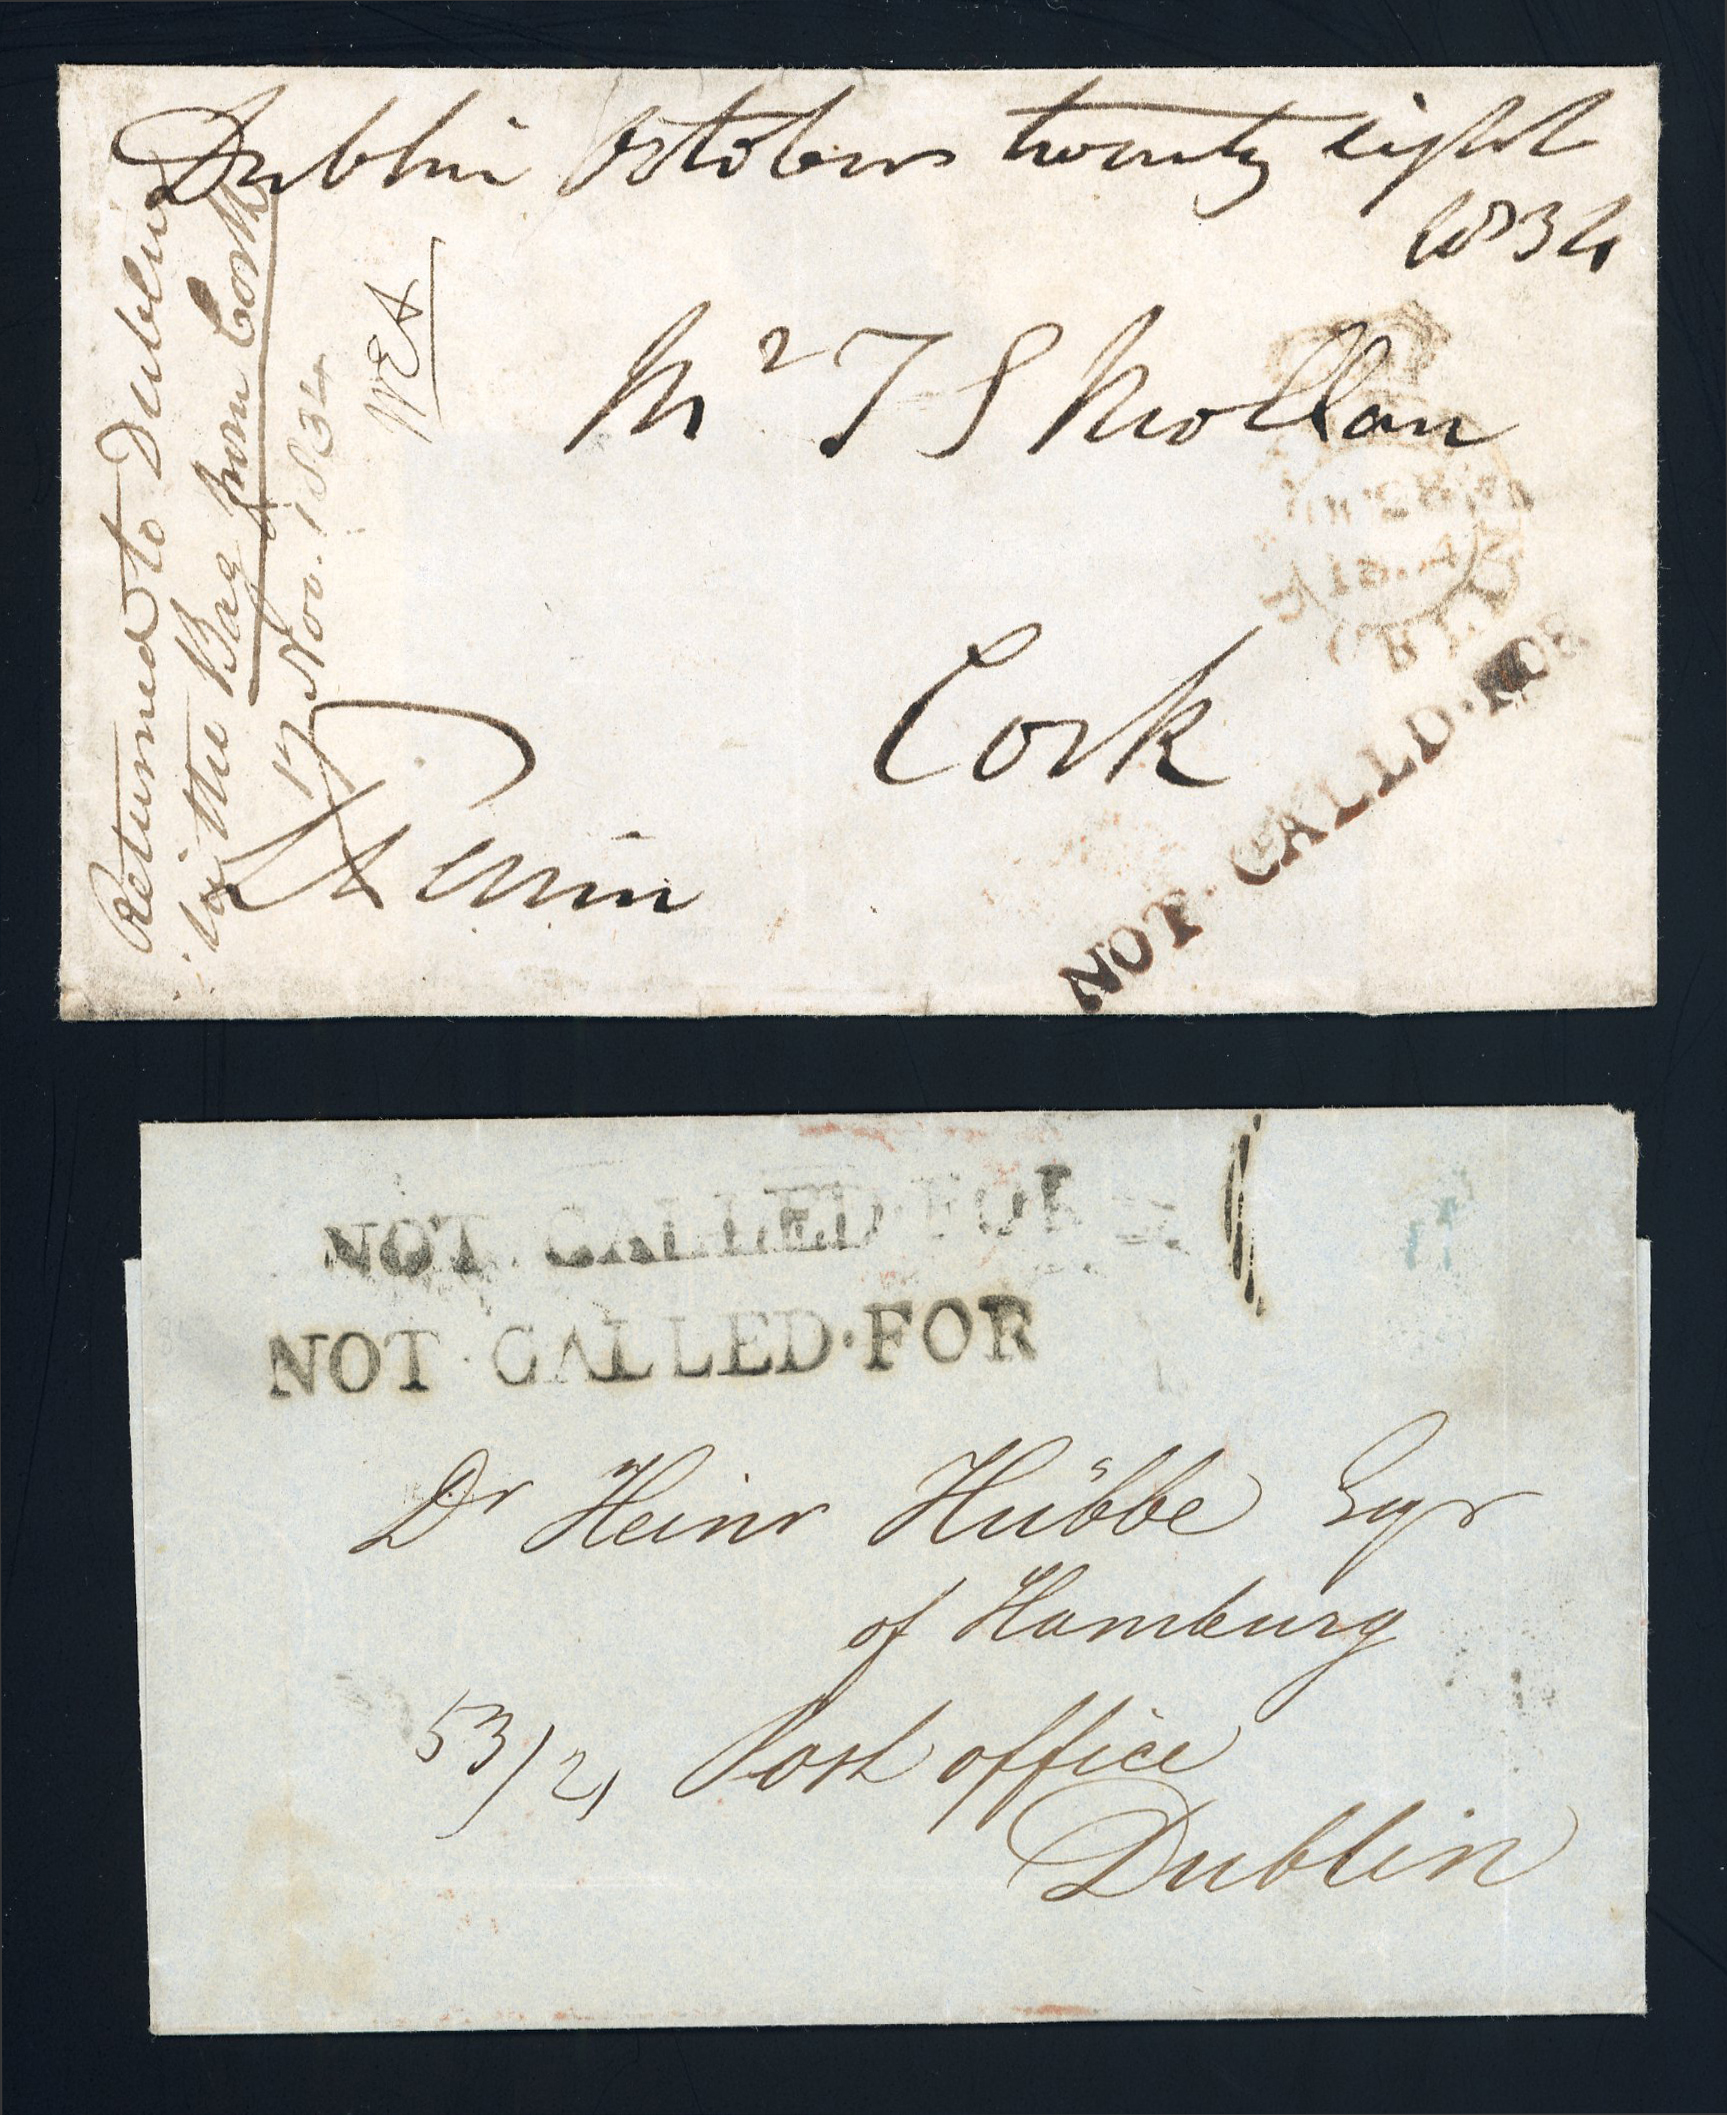 Dublin October twenty eight
1834
Mr T S Mollan
Cork
Returned to Dublin
in the Bag from Cork
17 Nov. 1834
WEA
NOT·CALLD·FOR
NOT·CALLED·FOR
NOT·CALLED·FOR
Dr Heinr Hübbe Esqr
of Hamburg
53/2, Post office
Dublin